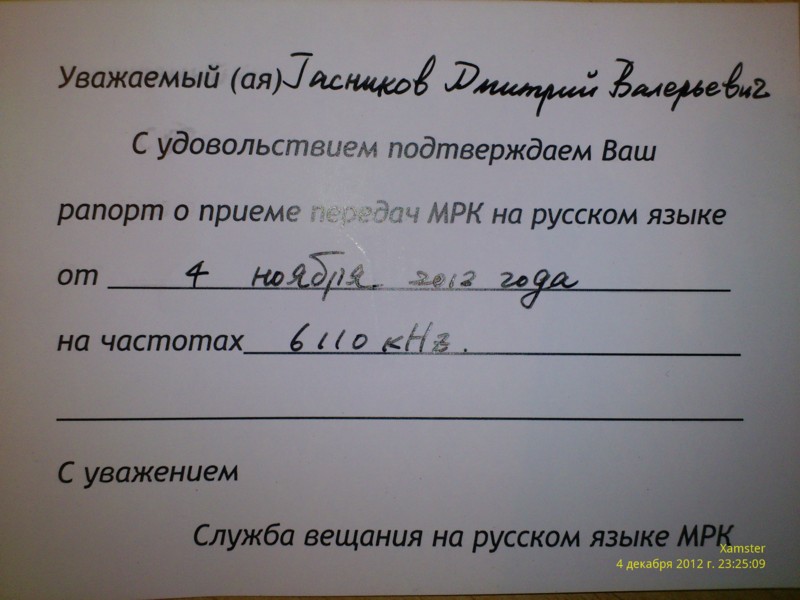 Уважаемый (ая) Гасников Дмитрий Валерьевич
С удовольствием подтверждаем Ваш
рапорт о приеме передач МРК на русском языке
от 4 ноября. 2012 года
на частотах 6110 кHz.
С уважением
Служба вещания на русском языке МРК
Xamster
4 декабря 2012 г. 23:25:09